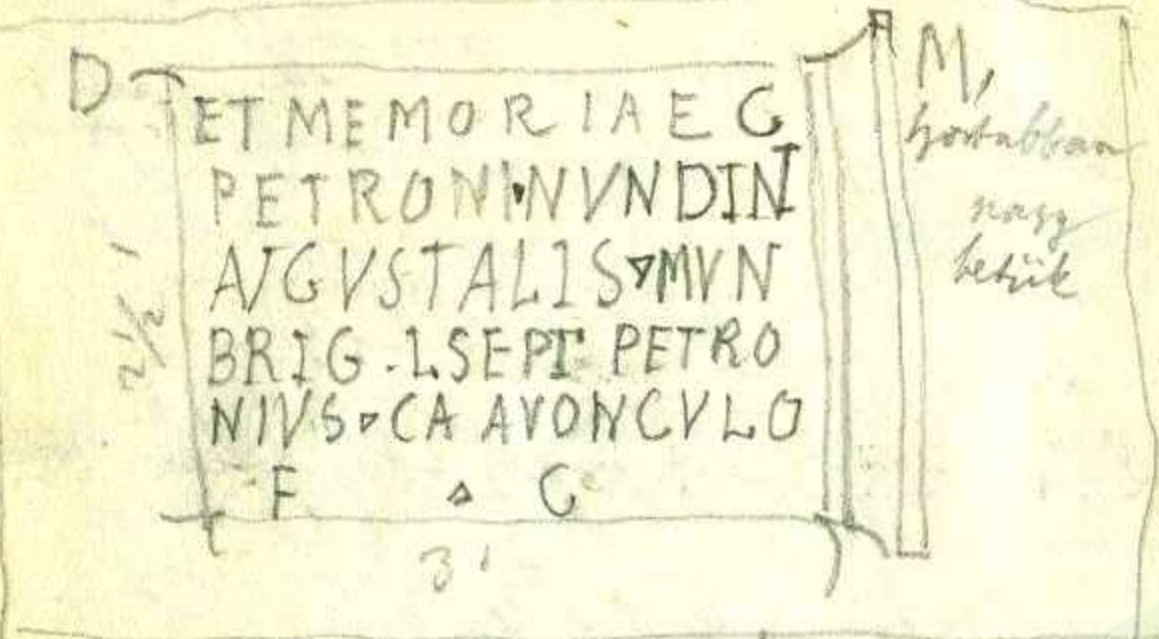 D M,
ET MEMORIAE C
PETRONI•NVNDINT
AVGVSTALIS▿MVN
BRIG.L SEPT PETRO
NIVS▹CA AVONCVLO
F ▵ C
2 1/2'
3'
nagy
betűk